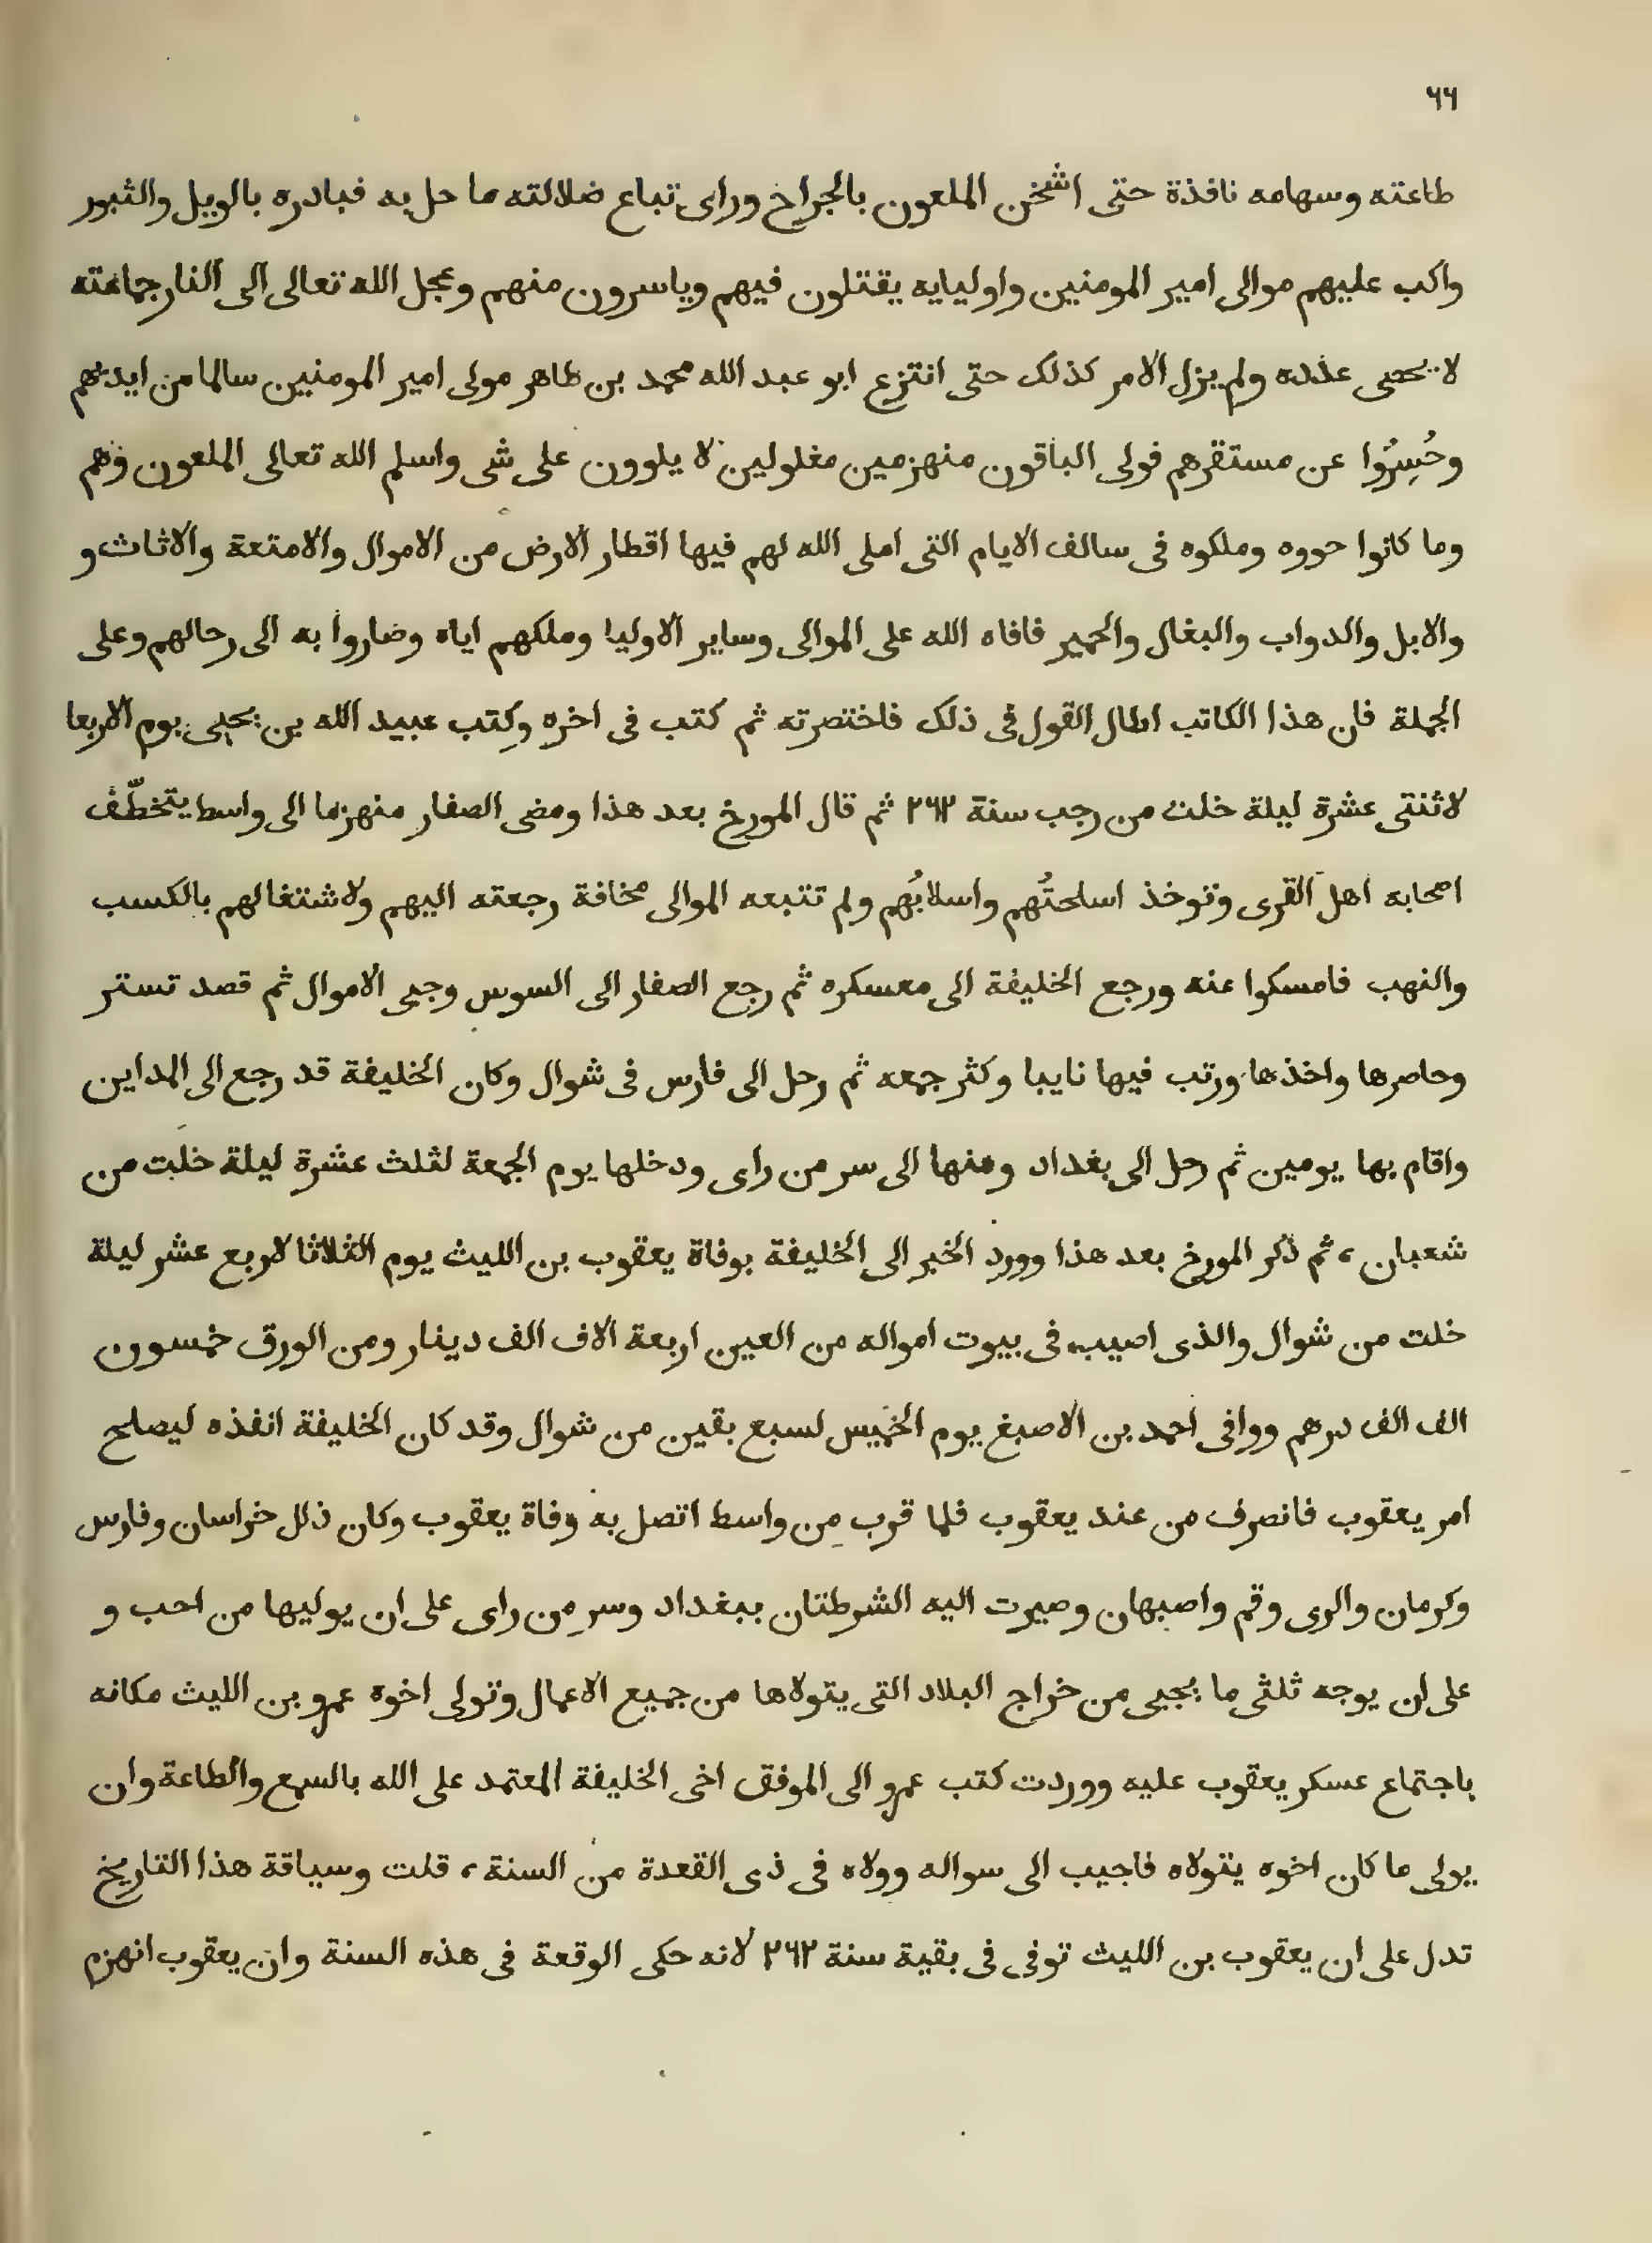 ٦٦
طاعته وسهامه نافذة حتى اثخن الملعون بالجراح وراى تباع ضلالته ما حل به فبادره بالويل والثبور
واكب عليهم موالى امير المومنين واوليايه يقتلون فيهم وياسرون منهم وعجل الله تعالى الى النار جماعته
لا يحصى عدده ولم يزل الامر كذلك حتى انتزع ابو عبد الله محمد بن طاهر مولى امير المومنين سالما من ايديهم
وحُسِرُوا عن مستقرهم فولى الباقون منهزمين مغلولين لا يلوون على شى واسلم الله تعالى الملعون وهم
وما كانوا حووه وملكوه فى سالف الايام التى املى الله لهم فيها اقطار الارض من الاموال والامتعة والاثاث و
والابل والدواب والبغال والحمير فافاه الله على الموالى وساير الاوليا وملكهم اياه وصاروا به الى رحالهم وعلى
الجملة فان هذا الكاتب اطال القول فى ذلك فاختصرته ثم كتب فى اخره وكتب عبيد الله بن يحيى يوم الاربعا
لاثنتى عشرة ليلة خلت من رجب سنة ٢٦٢ ثم قال المورخ بعد هذا ومضى الصفار منهزما الى واسط يتخطّف
اصحابه اهل القرى وتوخذ اسلحتُهم واسلابُهم ولم تتبعه الموالى مخافة رجعته اليهم ولاشتغالهم بالكسب
والنهب فامسكوا عنه ورجع الخليفة الى معسكره ثم رجع الصفار الى السوس وجبى الاموال ثم قصد تستر
وحاصرها واخذها ورتب فيها نايبا وكثر جمعه ثم رحل الى فارس فى شوال وكان الخليفة قد رجع الى المداين
واقام بها يومين ثم رحل الى بغداد ومنها الى سر من راى ودخلها يوم الجمعة لثلث عشرة ليلة خلت من
شعبان ، ثم ذكر المورخ بعد هذا وورد الخبر الى الخليفة بوفاة يعقوب بن الليث يوم الثلاثا لاربع عشر ليلة
خلت من شوال والذى اصيب فى بيوت امواله من العين اربعة الاف الف دينار ومن الورق خمسون
الف الف درهم ووافى احمد بن الاصبغ يوم الخميس لسبع بقين من شوال وقد كان الخليفة انفذه ليصلح
امر يعقوب فانصرف من عند يعقوب فلما قرب من واسط اتصل به وفاة يعقوب وكان ذلل خراسان وفارس
وكرمان والرى وقم واصبهان وصيرت اليه الشرطتان ببغداد وسر من راى على ان يوليها من احب و
على ان يوجه ثلثى ما يجبى من خراج البلاد التى يتولاها من جميع الاعمال وتولى اخوه عمرو بن الليث مكانه
باجتماع عسكر يعقوب عليه ووردت كتب عمرو الى الموفق اخى الخليفة المعتمد على الله بالسمع والطاعة وان
يولى ما كان اخوه يتولاه فاجيب الى سواله وولاه فى ذى القعدة من السنة ، قلت وسياقة هذا التاريخ
تدل على ان يعقوب بن الليث توفى فى بقية سنة ٢٦٢ لانه حكى الوقعة فى هذه السنة وان يعقوب انهزم